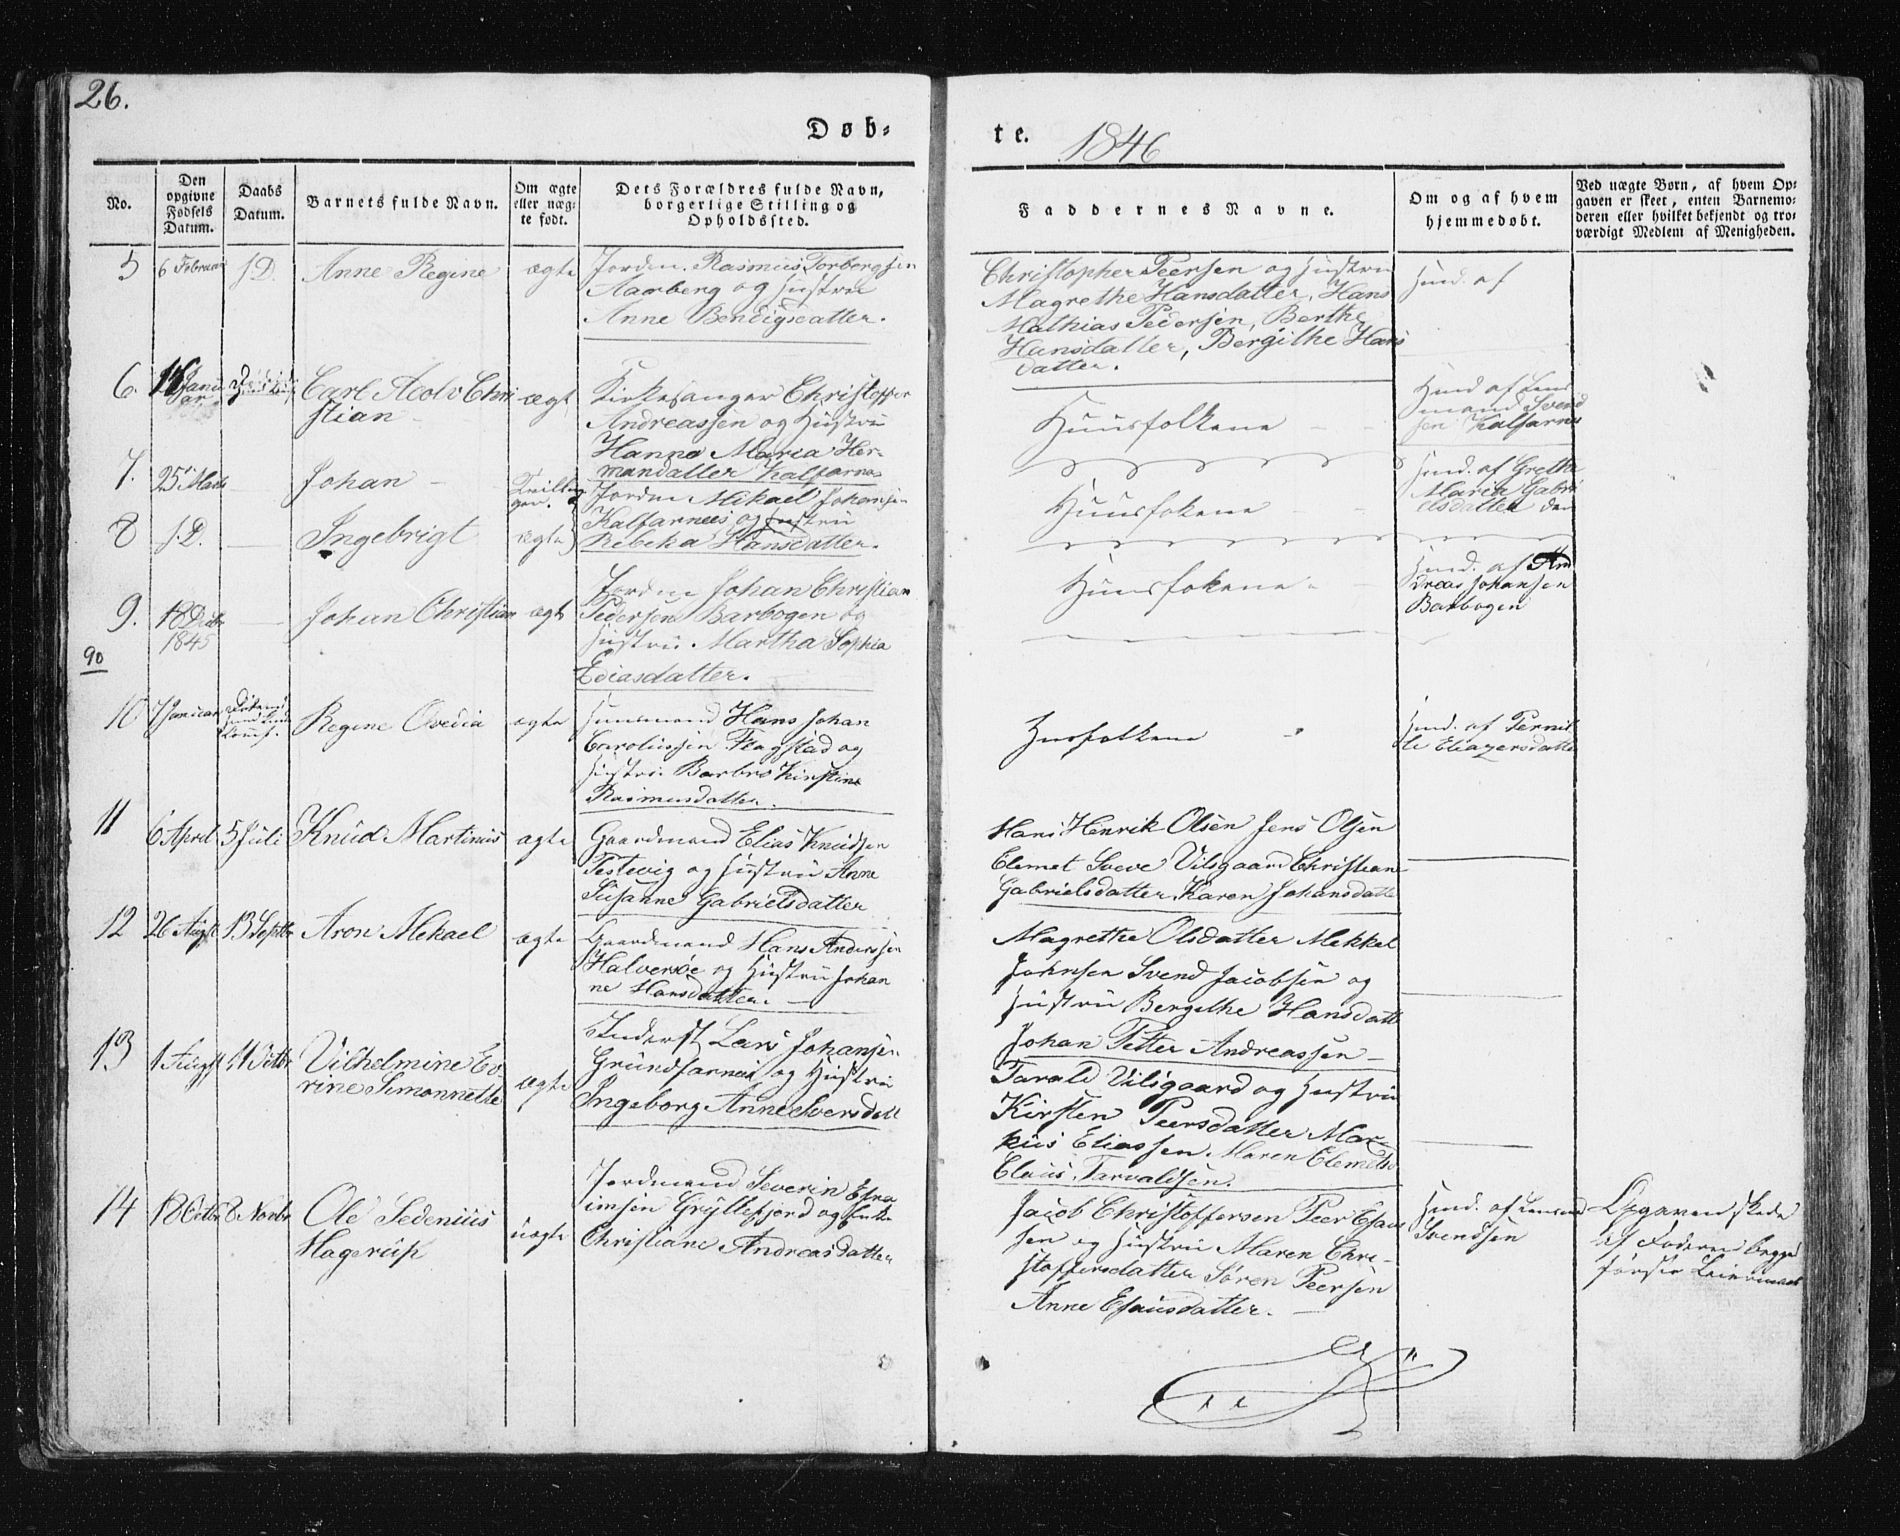 26.
Døb-
te. 1846
No.
Den opgivne Fødsels Datum.
Daabs Datum.
Barnets fulde Navn.
Om ægte eller uæg-te født.
Dets Forældres fulde Navn, borgerlige Stilling og Opholdssted.
Faddernes Navne.
Om og af hvem hjemmedøbt.
Ved uægte Børn, af hvem Op-
gaven er skeet, enten Barnemo-
deren eller hvilket bekjendt og tro-
værdigt Medlem af Menigheden.
5
6 Februar
S.D.
Anne Regine
ægte
Jordm. Rasmus Torbergsen
Aarberg og Hustru
Anne Bendigsdatter.
Christopher Peersen og Hustru
Magrethe Hansdatter, Hans
Mathias Pedersen, Berthe
Hansdatter, Bergithe Hans
datter.
Hmd. af
6.
Janu
ar
Carl Adolv Chri
stian
ægt
Kirkesanger Christoffer
Andreassen og Hustru
Hanna Maria Her-
mandatter Kalfarnes
Huusfolkene
Hmd af Lens
mand Svend
sen Kalfarnes
7.
25 Marts
Johan
Tvillin
ger.
Jordm Mikael Johansen
Kalfarnes og Hustru
Rebeka Hansdatter.
Huusfokene
Hmd. af Grethe
Maria Gabri
elsdatter
8
S.D.
Ingebrigt
ægte
9.
18 Decbr
1845
Johan Christian
ægte
Jordm Johan Christian
Pedersen Barbogen og
Hustru Martha Sophia
Ediasdatter.
Huusfokene
Hmd. af An
dreas Johansen
Barbogen
90
10
7 Januar
Regine Ovedia
ægte
Huusmand Hans Johan
Carolussen Flagstad og
Hustru Barbro Kirstine
Rasmusdatter.
Husfolkene
Hmd. af Pernil
le Eliazersdatter
11
6 April
5 Juli
Knud Martinus
ægte
Gaardmand Elias Knudsen
Testevig og Hustru Anne
Susanne Gabrielsdatter
Hans Henrik Olsen Jens Olsen
Elemet Vilsgaard Christian
Gabrielsdatter Karen Johansdatte
12
26 Augst
13 Septbr
Aron Mekael
ægte
Gaardmand Hans Anderssen
Halversøe og Hustru Johan
ne Hansdatter.
Magrethe Olsdatter Mekkel
Johnsen Svend Jacobsen og
Hustru Bergithe Hansdatte
Johan Petter Andreassen
13
1 Augst
11 Octbr
Vilhelmine Ev
rine Simonnette
ægte
Inderst Lars Johansen
Grundfarnes og Hustru
Ingeborg Anne Iversdatt
Tarald Vilsgaard og Hustru
Kirsten Peersdatter Mar-
kus Eliassen Maren Elemets
Claus Tarvaldsen.
14
18 Octbr
8 Novbr
Ole Sedenius
Hagerup
uægte
Jordmand Severin Efra
imsen Gryllefjord og Enke
Christiane Andreasdatter
Jacob Christoffersen Peer Esaus
sen og Hustru Maren Chri-
stoffersdatter Søren Peersen
Anne Esausdatter.
Hmd. af Lensmd
Svendsen
Opgaven skede
af Faderen begges
første Leiermaal